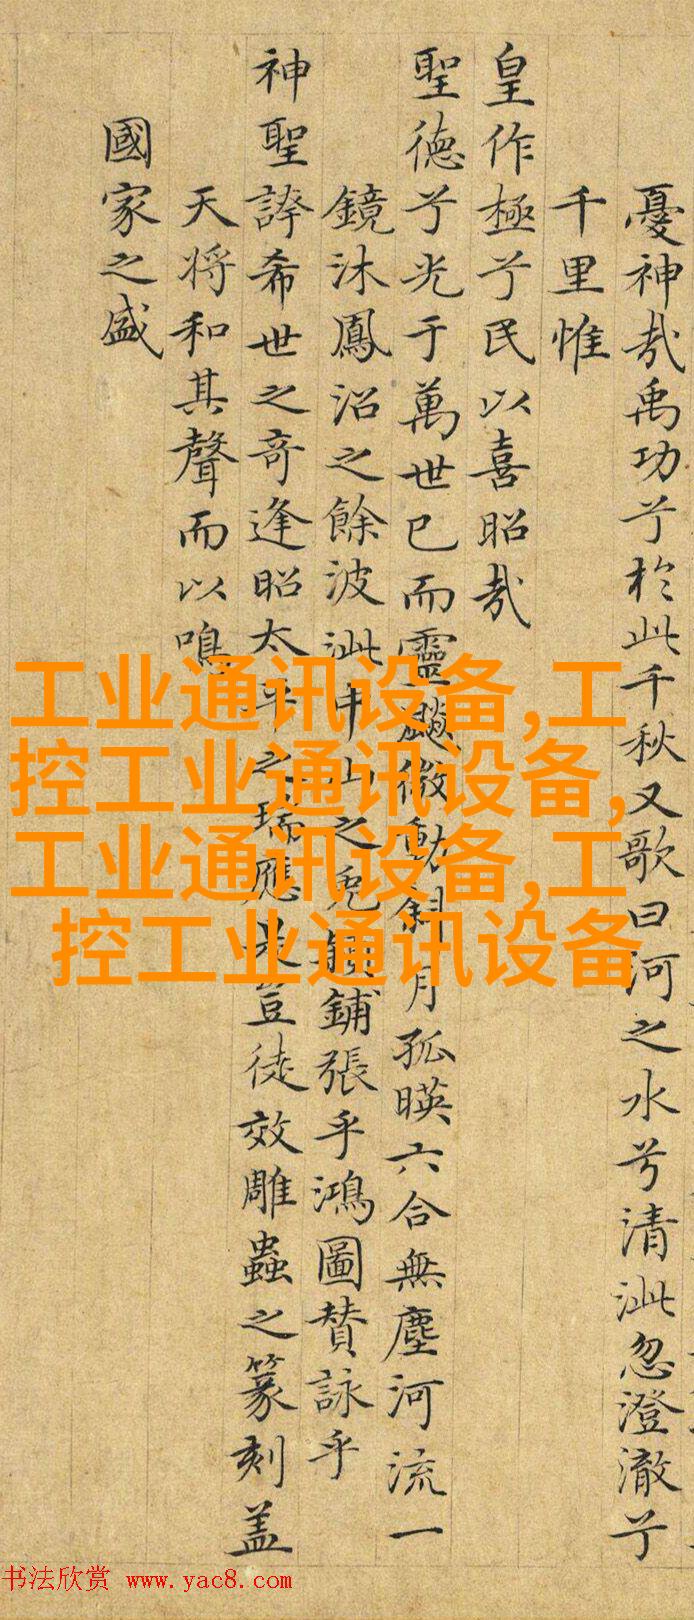 憂神哉禹功兮於此千秋又歌曰河之水兮清泚忽澄澈兮
千里惟
皇作極兮民以喜昭哉
聖德兮光于萬世已而靈飈微動斜月孤暎六合無塵河流一
鏡沐鳳沼之餘波泚中山之兔穎鋪張乎鴻圖贊詠乎
神聖誇希世之奇逢昭太平之瑞應夫豈徒效雕蟲之篆刻盖
天将和其聲而以鳴
國家之盛
工业通讯设备,工
控工业通讯设备,
工业通讯设备,工
控工业通讯设备
书法欣赏 www.yac8.com